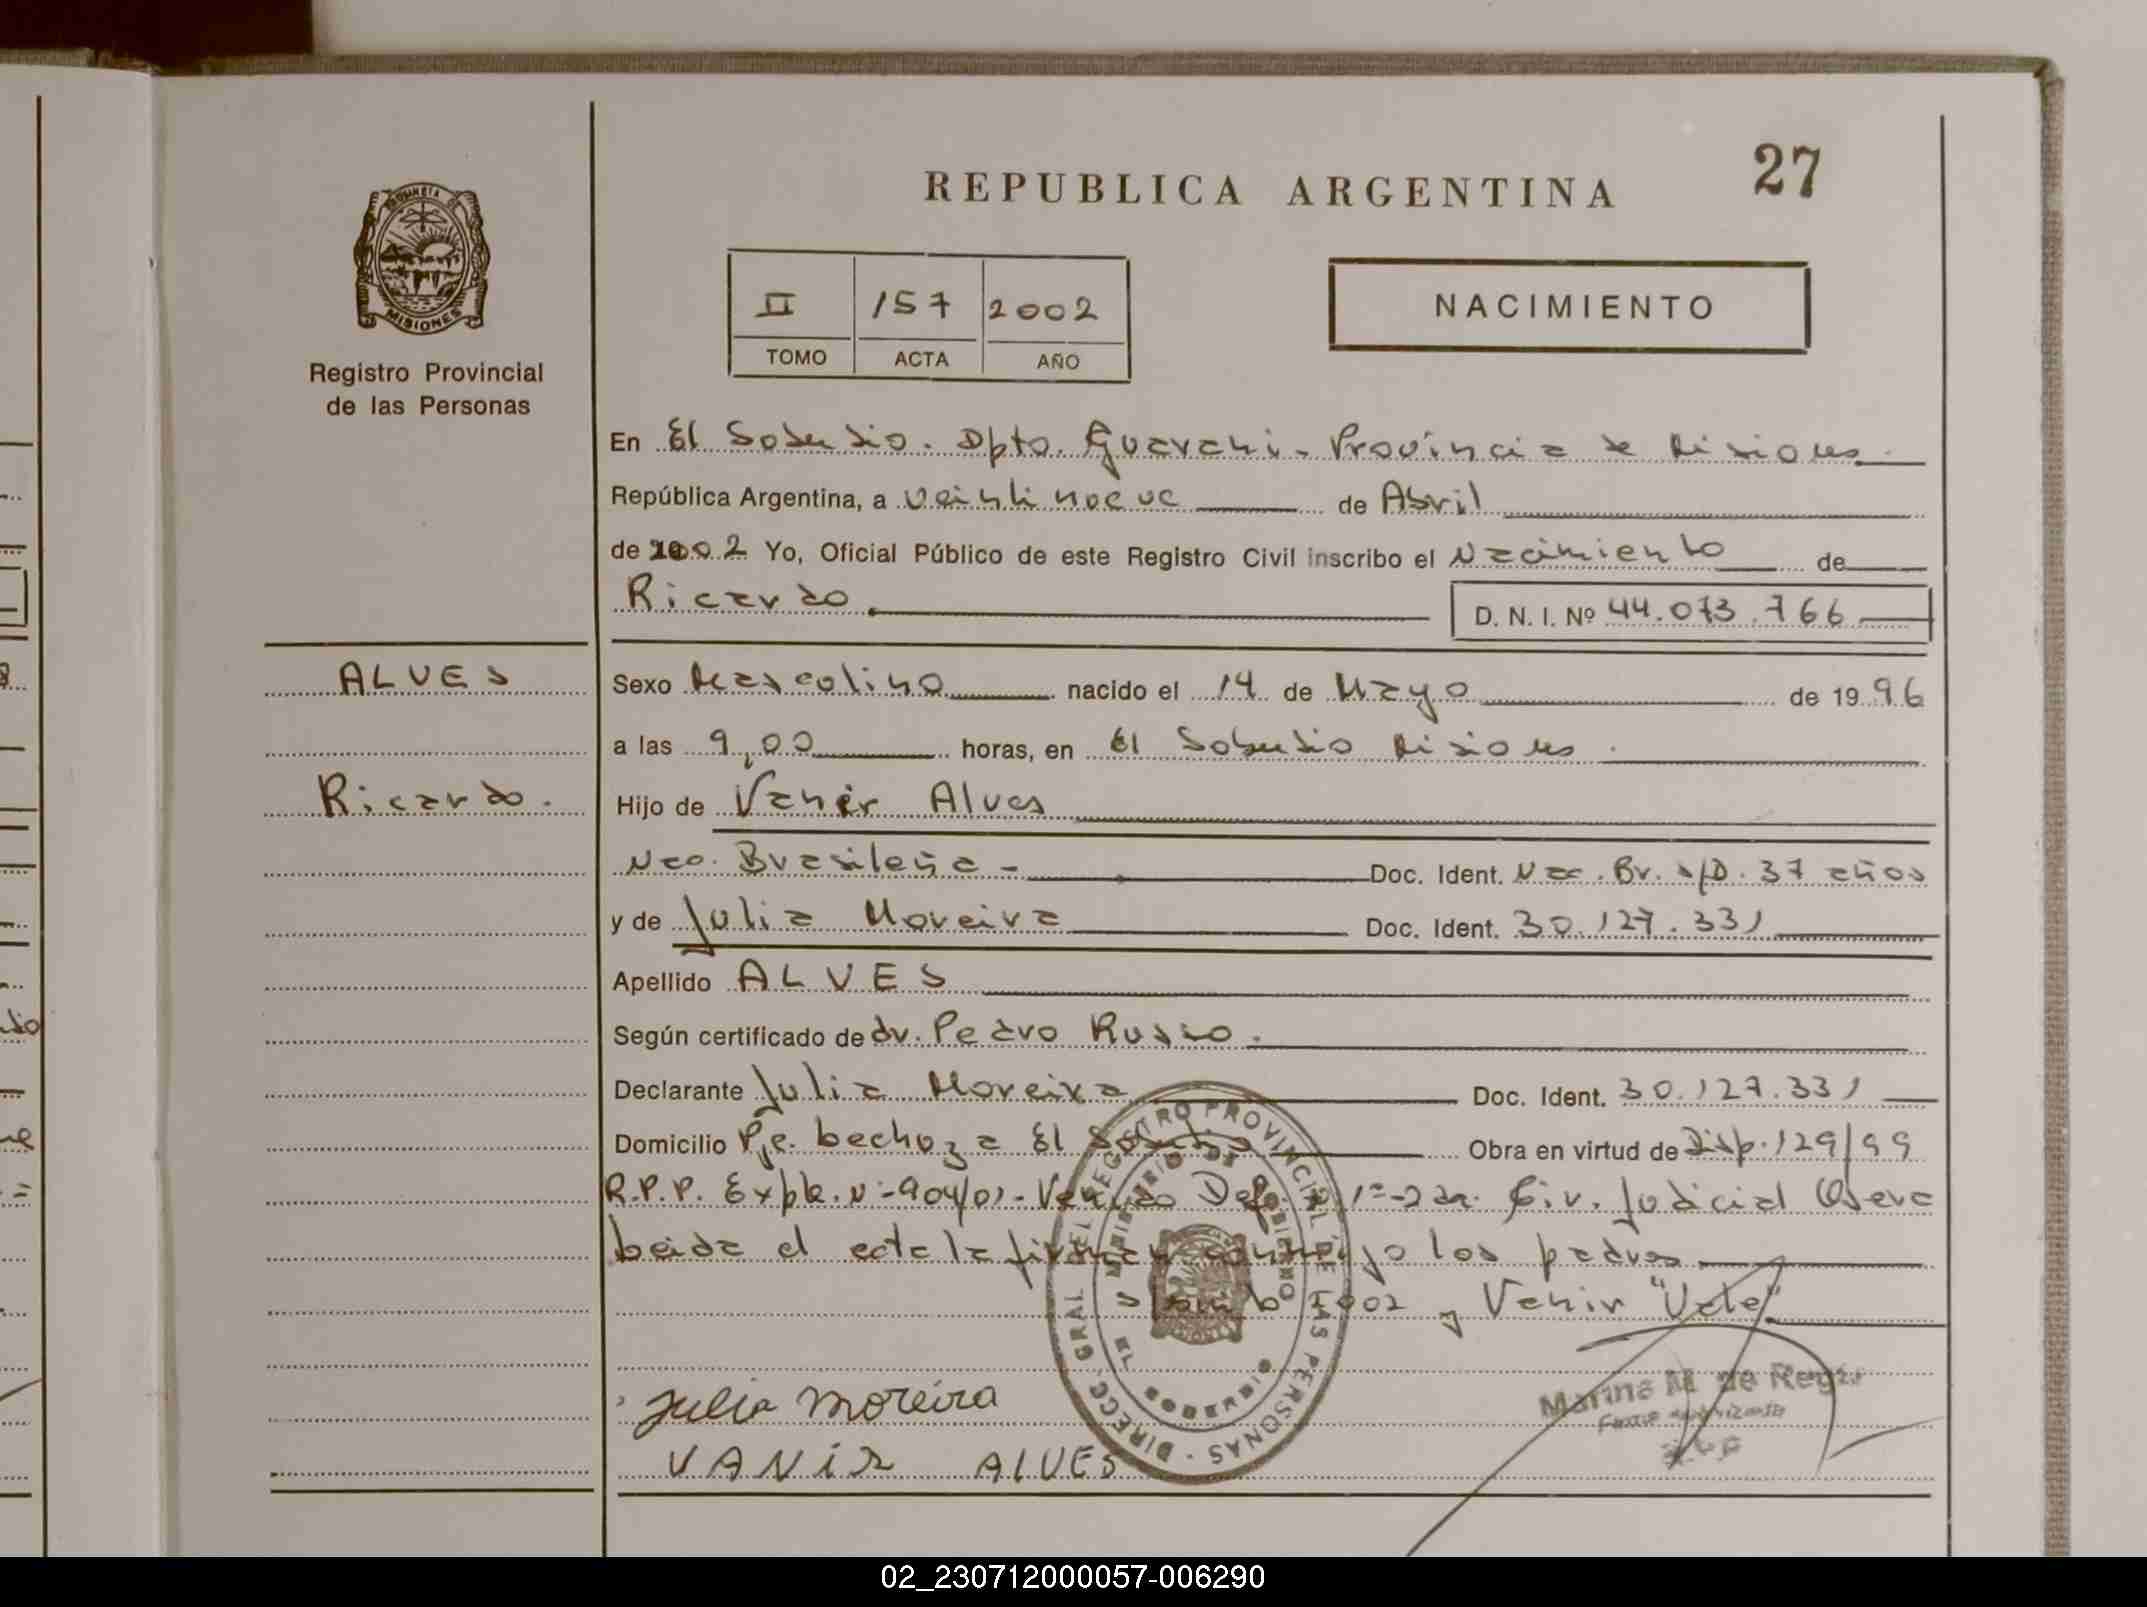 REPUBLICA ARGENTINA
27
PROVINCIA DE
MISIONES
Registro Provincial
de las Personas
II 157 2002
TOMO ACTA AÑO
NACIMIENTO
En El Soberbio. Dpto. Guarani. Provincia de Misiones.
República Argentina, a veintinueve de Abril
de 2002 Yo, Oficial Público de este Registro Civil inscribo el Nacimiento de
Ricardo
D. N. I. Nº 44.073.766
ALVES
Sexo Masculino nacido el 14 de Mayo de 1996
a las 9,00 horas, en El Soberbio Misiones.
Ricardo.
Hijo de Vanir Alves
Nac. Brasileña - Doc. Ident. Nac. Br. s/D. 37 años
y de Julia Moreira Doc. Ident. 30.127.331
Apellido ALVES
Según certificado de dr. Pedro Russo.
Declarante Julia Moreira Doc. Ident. 30.127.331
Domicilio Pje. bechoza El Soberbio Obra en virtud de Disp. 129/99
R.P.P. Expte. Nº 904/01 - Def. 1ª Cir. Judicial Obera
leida el acta la firman conmigo los padres
2002 y Vanir "Vale"
DIRECC. GRAL. DEL REGISTRO PROVINCIAL DE LAS PERSONAS
MINISTERIO DE GOBIERNO
EL SOBERBIO
Julia Moreira
VANIR ALVES
Marina M. de
02_230712000057-006290